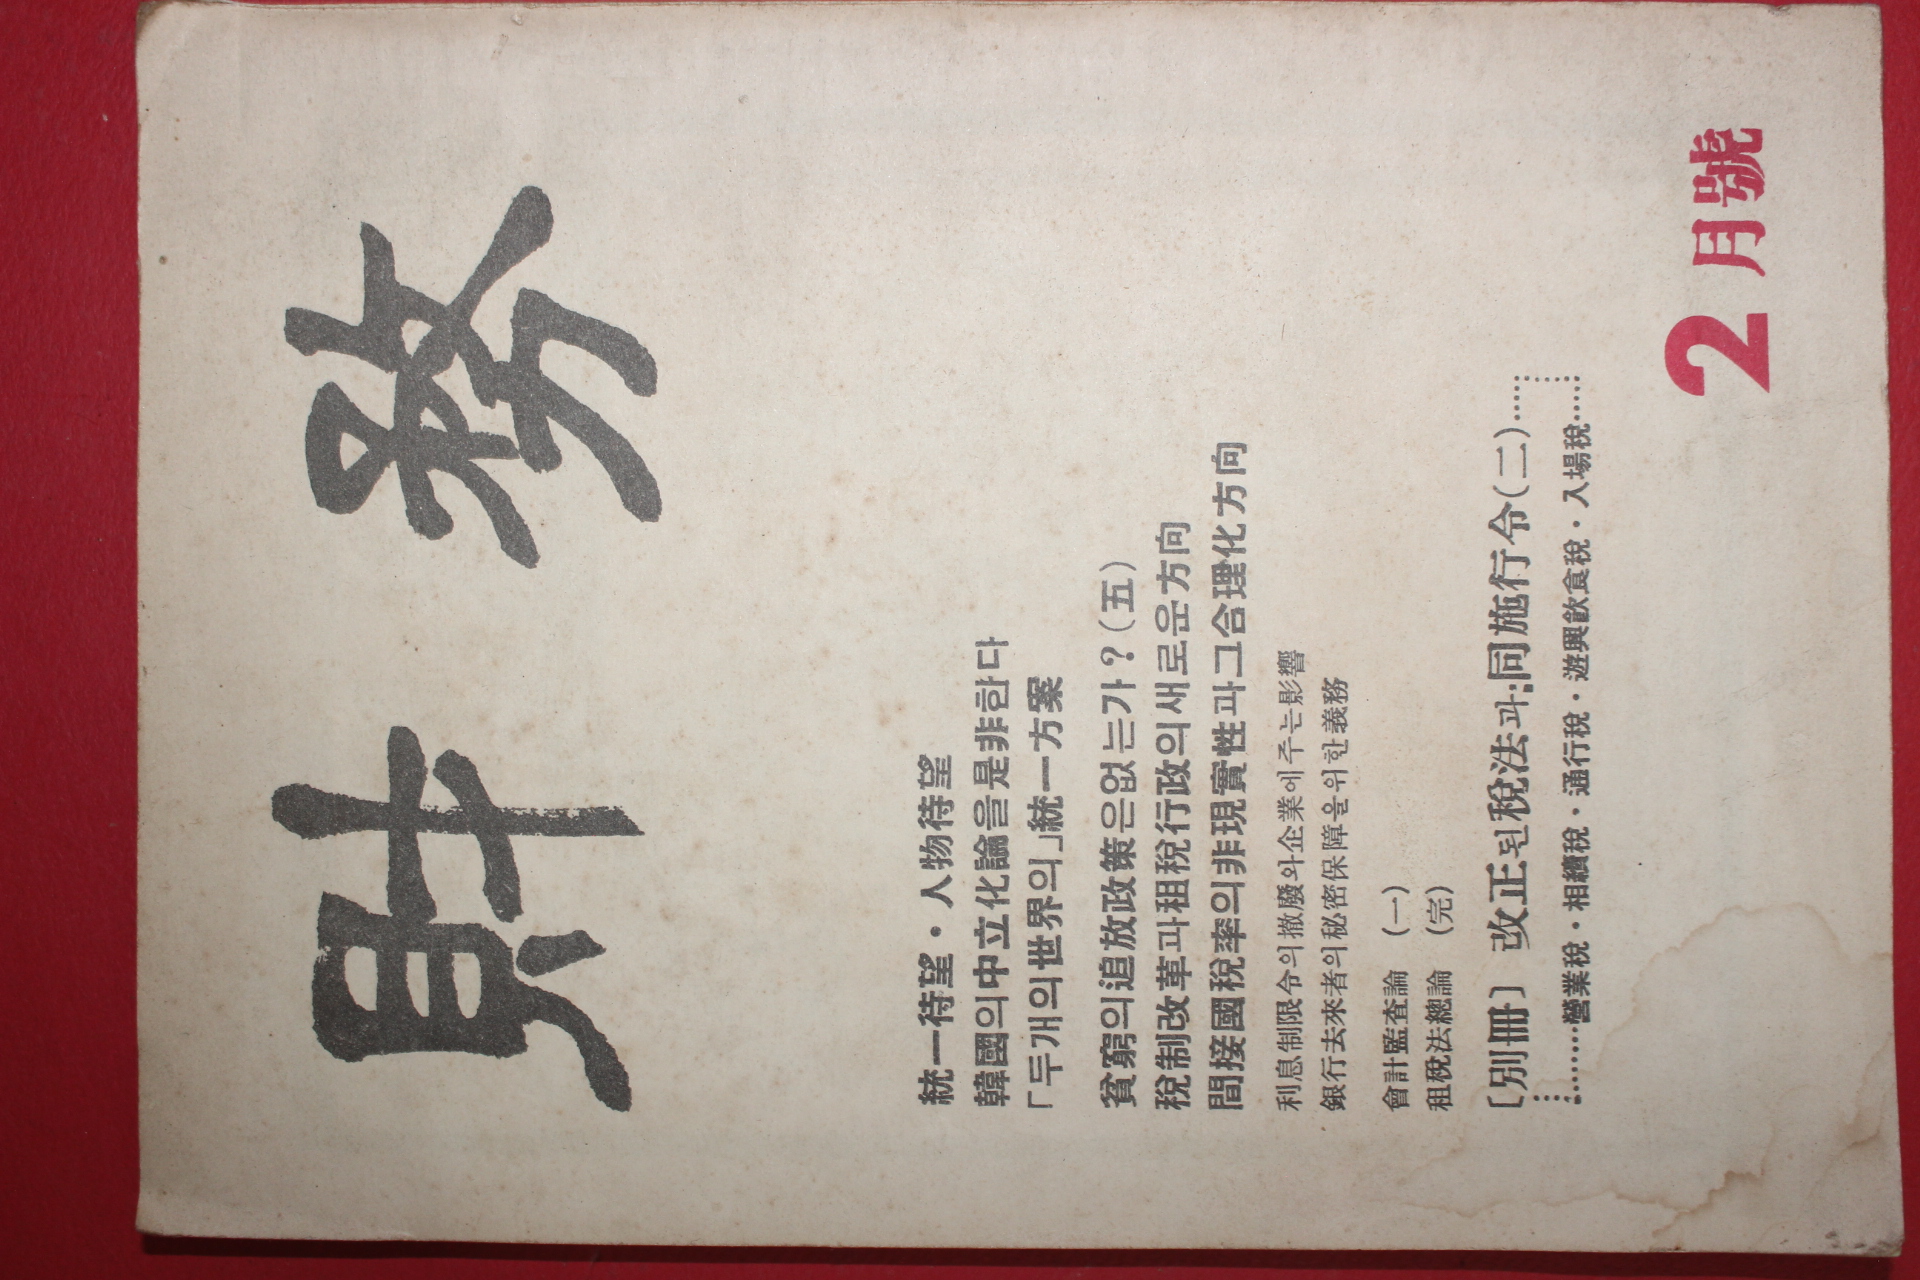 財務
統一待望・人物待望
韓國의中立化論을是非한다
「두개의世界의」統一方案
貧窮의追放政策은없는가?(五)
稅制改革과租稅行政의새로운方向
間接國稅率의非現實性과그合理化方向
利息制限令의撤廢와企業에주는影響
銀行去來者의秘密保障을위한義務
會計監査論 (一)
租稅法總論 (完)
〔別冊〕 改正된稅法과:同施行令(二)
營業稅・相續稅・通行稅・遊興飮食稅・入場稅
2月號